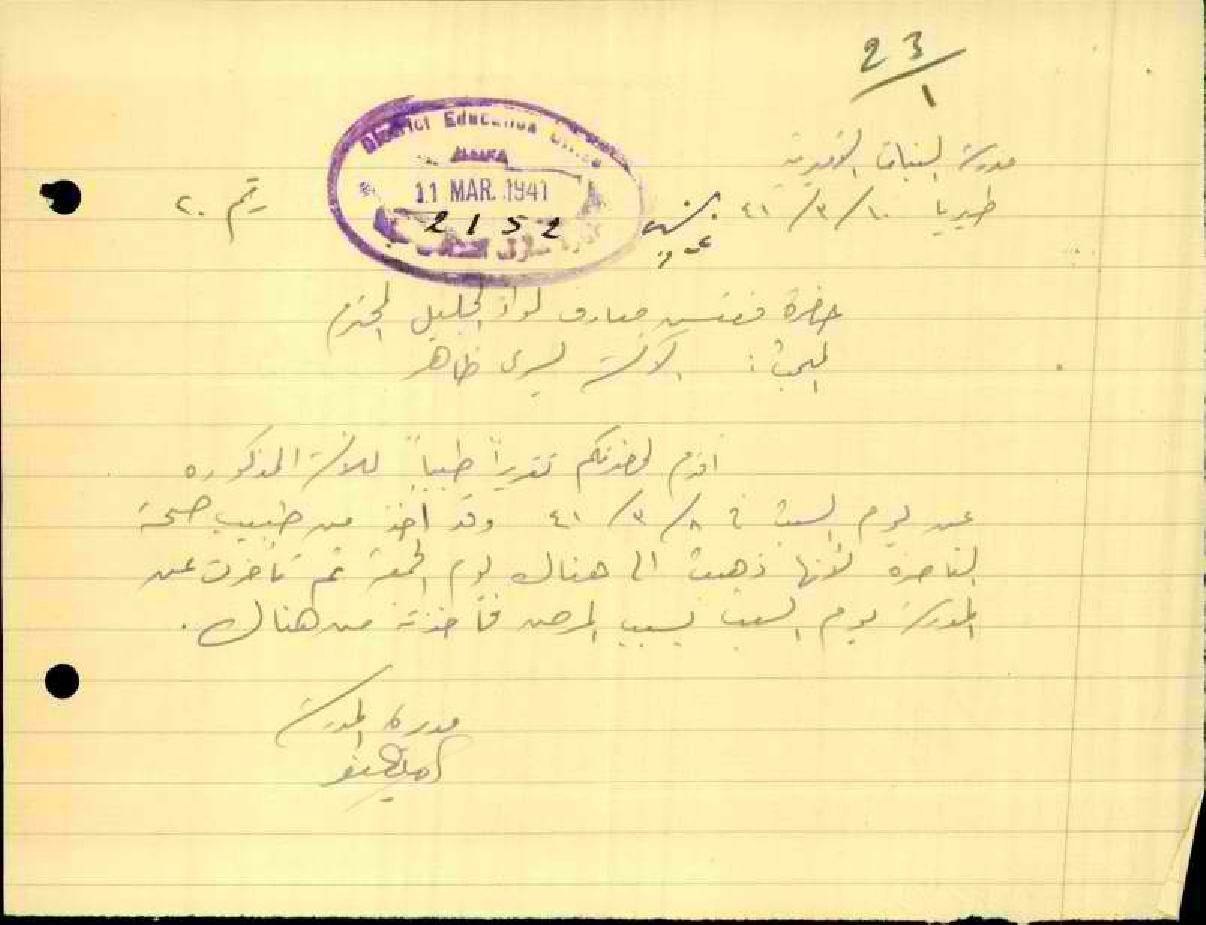 23
1
مدرسة البنات الاميرية
طبريا ١٠/٣/٤١
رقم ٢٠
District Education Office
HAIFA
11 MAR. 1941
2152
حضرة مفتش معارف لواء الجليل المحترم
المبحث : الآنسة يسرى ظاهر
اقدم لحضرتكم تقريراً طبياً للآنسة المذكوره
عن يوم السبت في ٨/٣/٤١ وقد أخذ من طبيب صحة
الناصرة لأنها ذهبت الى هناك يوم الجمعة ثم تأخرت عن
المدرسة يوم السبت بسبب المرض فأخذته من هناك .
مديرة المدرسة